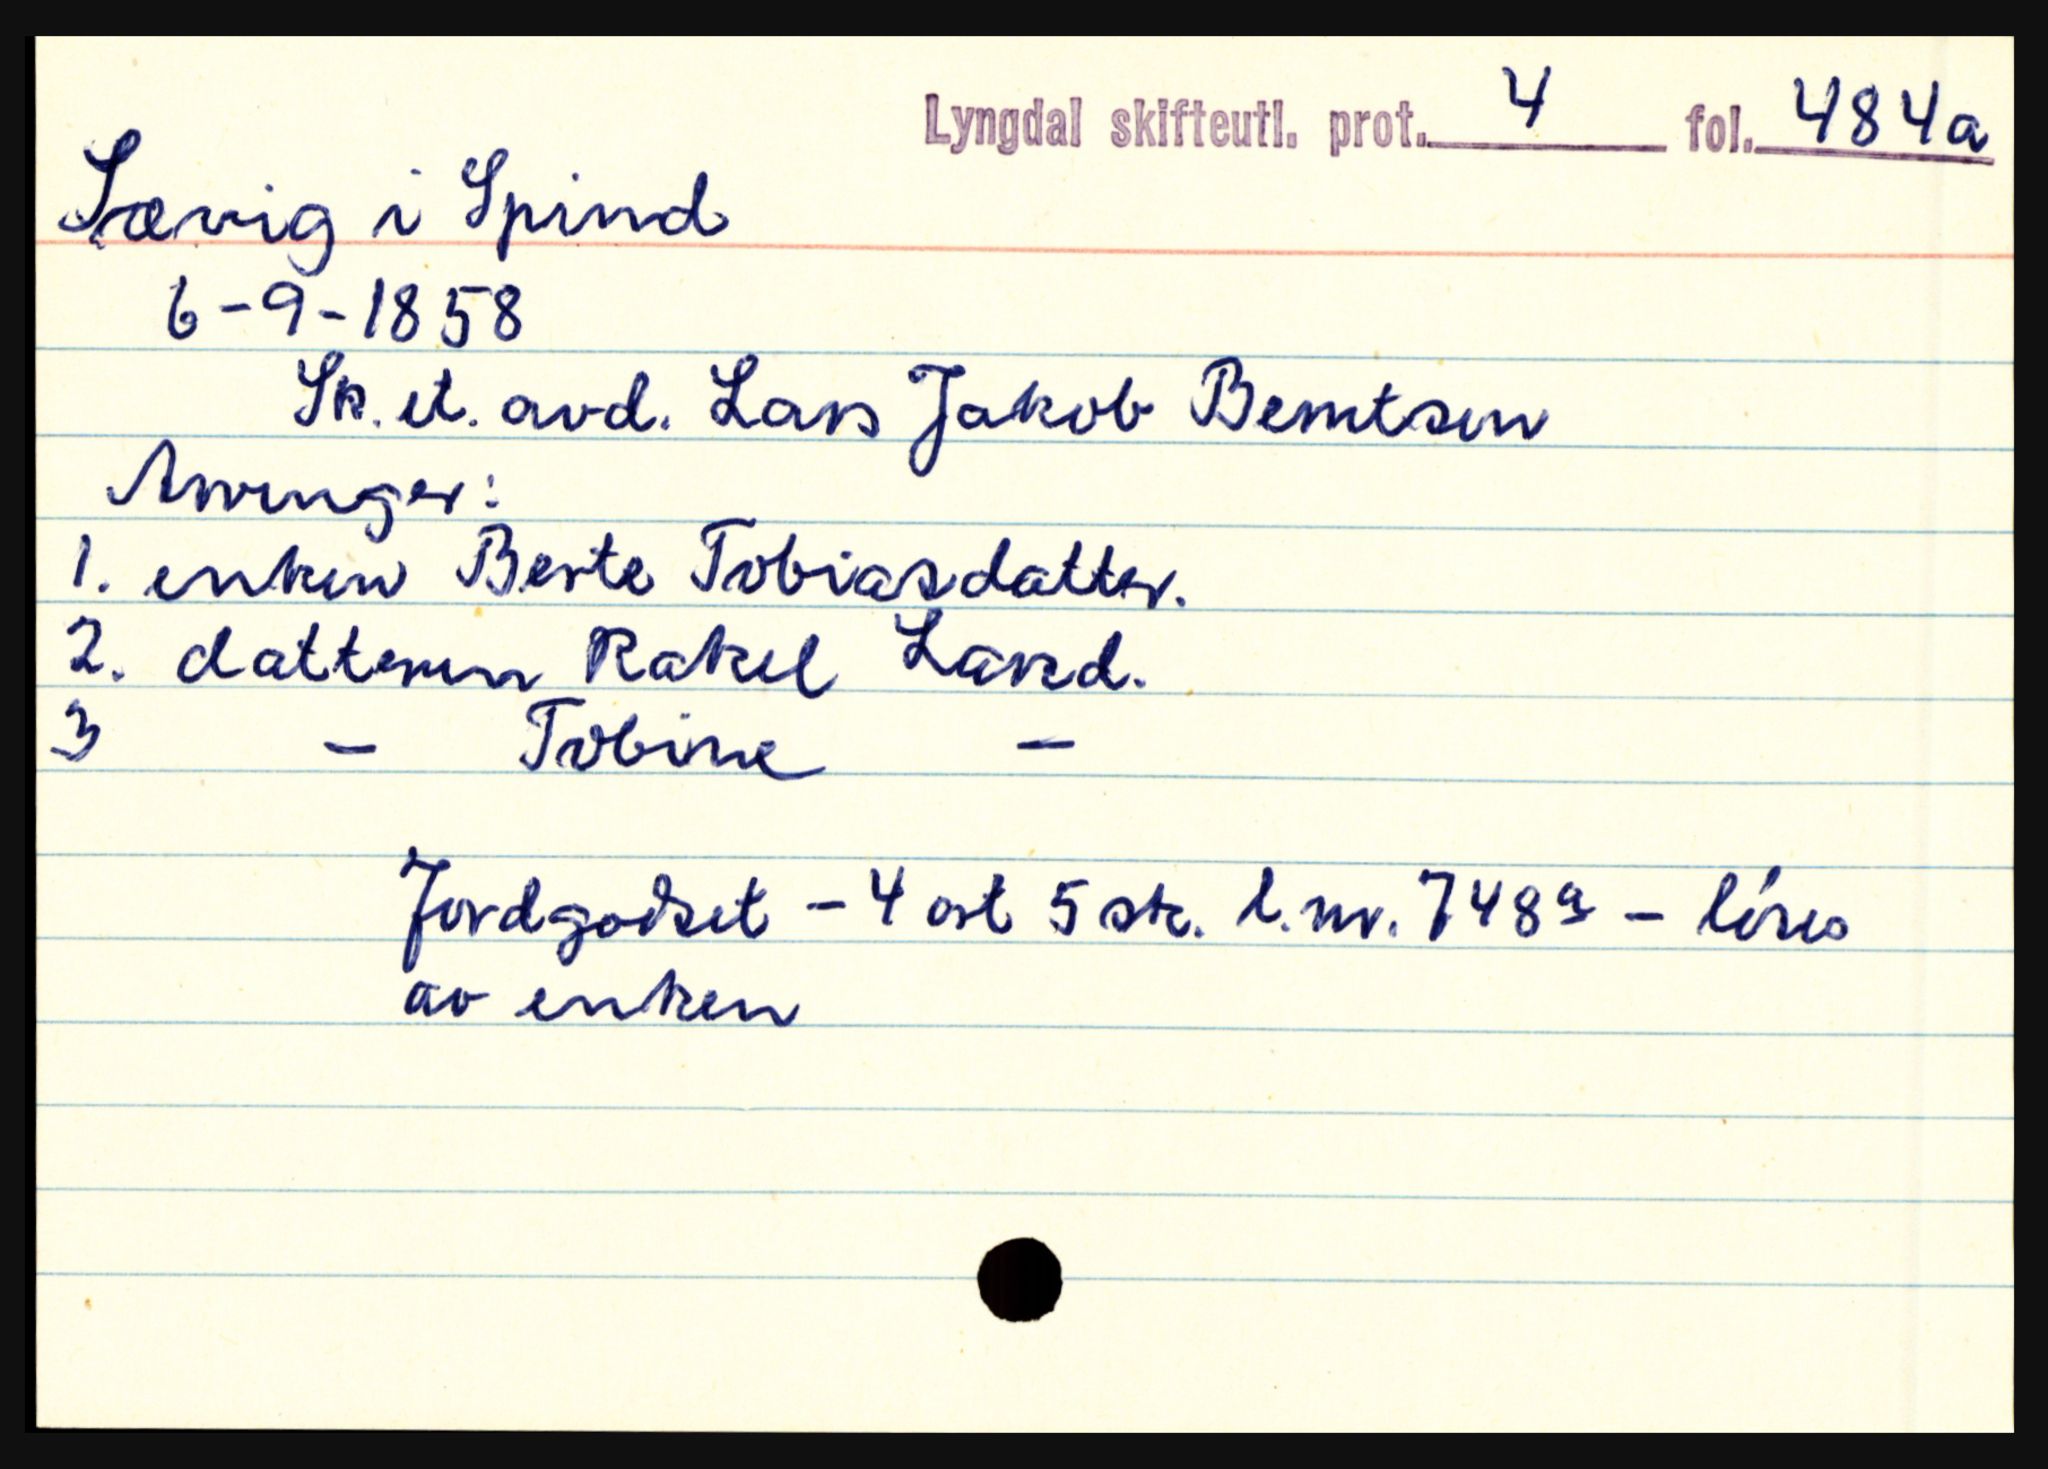 Lyngdal skifteutl. prot. 4 fol. 484a
Sævig i Spind
6-9-1858
Sk. et. avd. Lars Jakob Berntsen
Arvinger:
1. enken Berte Tobiasdatter.
2. datteren Rakel Larsd.
3 - Tobine -
Jordgodset - 4 ort 5 sk. l.nr. 748a -
av enken